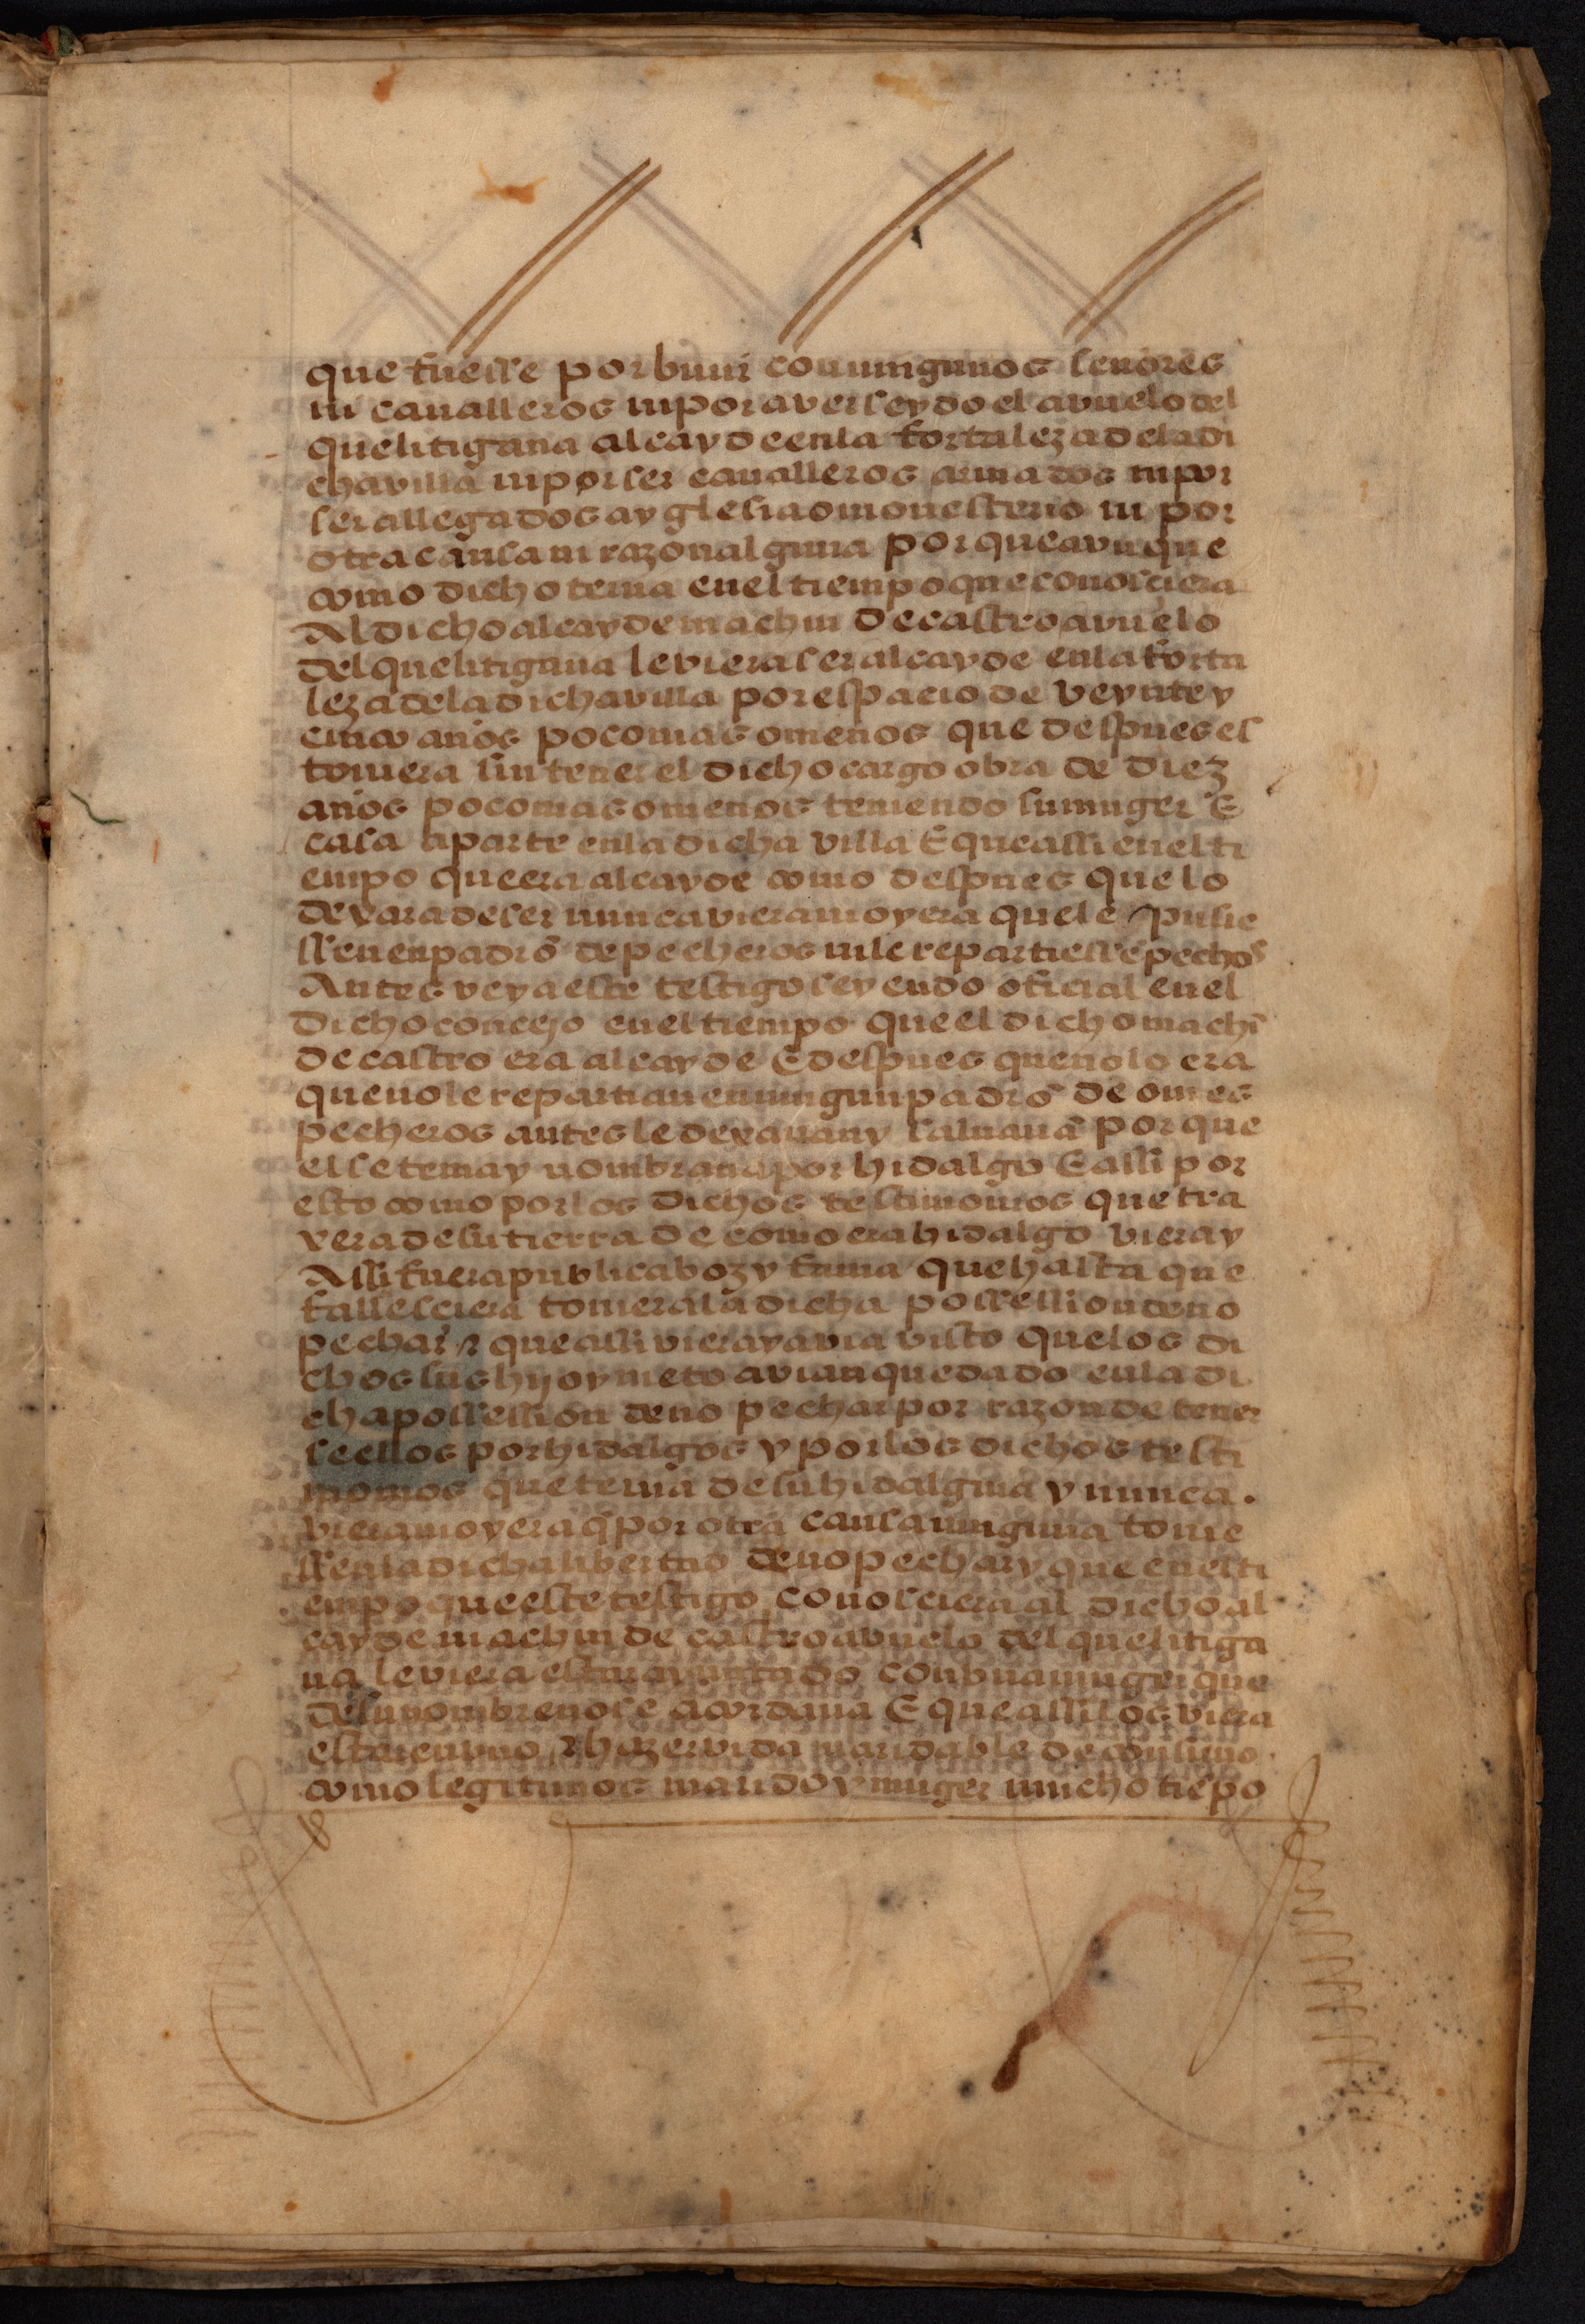 que fuesse por biuir con ningunos señores
ni caualleros ni por aver seydo el avuelo del
que litigaua alcayde en la fortaleza de la di
cha villa ni por ser caualleros armados ni por
ser allegados a yglesia o monesterio ni por
otra causa ni razon alguna por que avnque
como dicho tenia en el tiempo que conosciera
Al dicho alcayde machin de castro avuelo
del que litigaua le viera ser alcayde en la forta
leza de la dicha villa por espacio de veynte y
cinco años poco mas o menos que despues es
toviera sin tener el dicho cargo obra de diez
años poco mas o menos teniendo su muger E
casa aparte en la dicha villa E que assi en el ti
empo que era alcayde como despues que lo
dexara de ser nunca viera ni oyera que le pusie
ssen en padrō de pecheros ni le repartiessē pechos
Antes veya este testigo seyendo oficial en el
dicho concejo en el tiempo que el dicho machī
de castro era alcayde E despues que no lo era
que no le repartian en ningun padrō de omes
pecheros antes le dexauan y saluauā por que
el se tenia y nombraua por hidalgo E assi por
esto como por los dichos testimonios que tra
xera de su tierra de como era hidalgo viera y
Assi fuera publica boz y fama que hasta que
fallesciera toviera la dicha possession de no
pechar ⁊ que assi viera y avia visto que los di
chos sus hijo y nieto avian quedado en la di
cha possession de no pechar por razon de tener
se ellos por hidalgos y por los dichos testi
monios que tenia de su hidalguia y nunca
viera ni oyera q̄ por otra causa ninguna tovie
ssen la dicha libertad de no pechar y que en el ti
empo que este testigo conosciera al dicho al
cayde machin de castro avuelo del que litiga
ua le viera estar ayuntado con vna muger que
de su nombre no se acordaua E que assi los viera
estar en vno ⁊ hazer vida maridable de consuno
como legitimos marido y muger mucho tiēpo